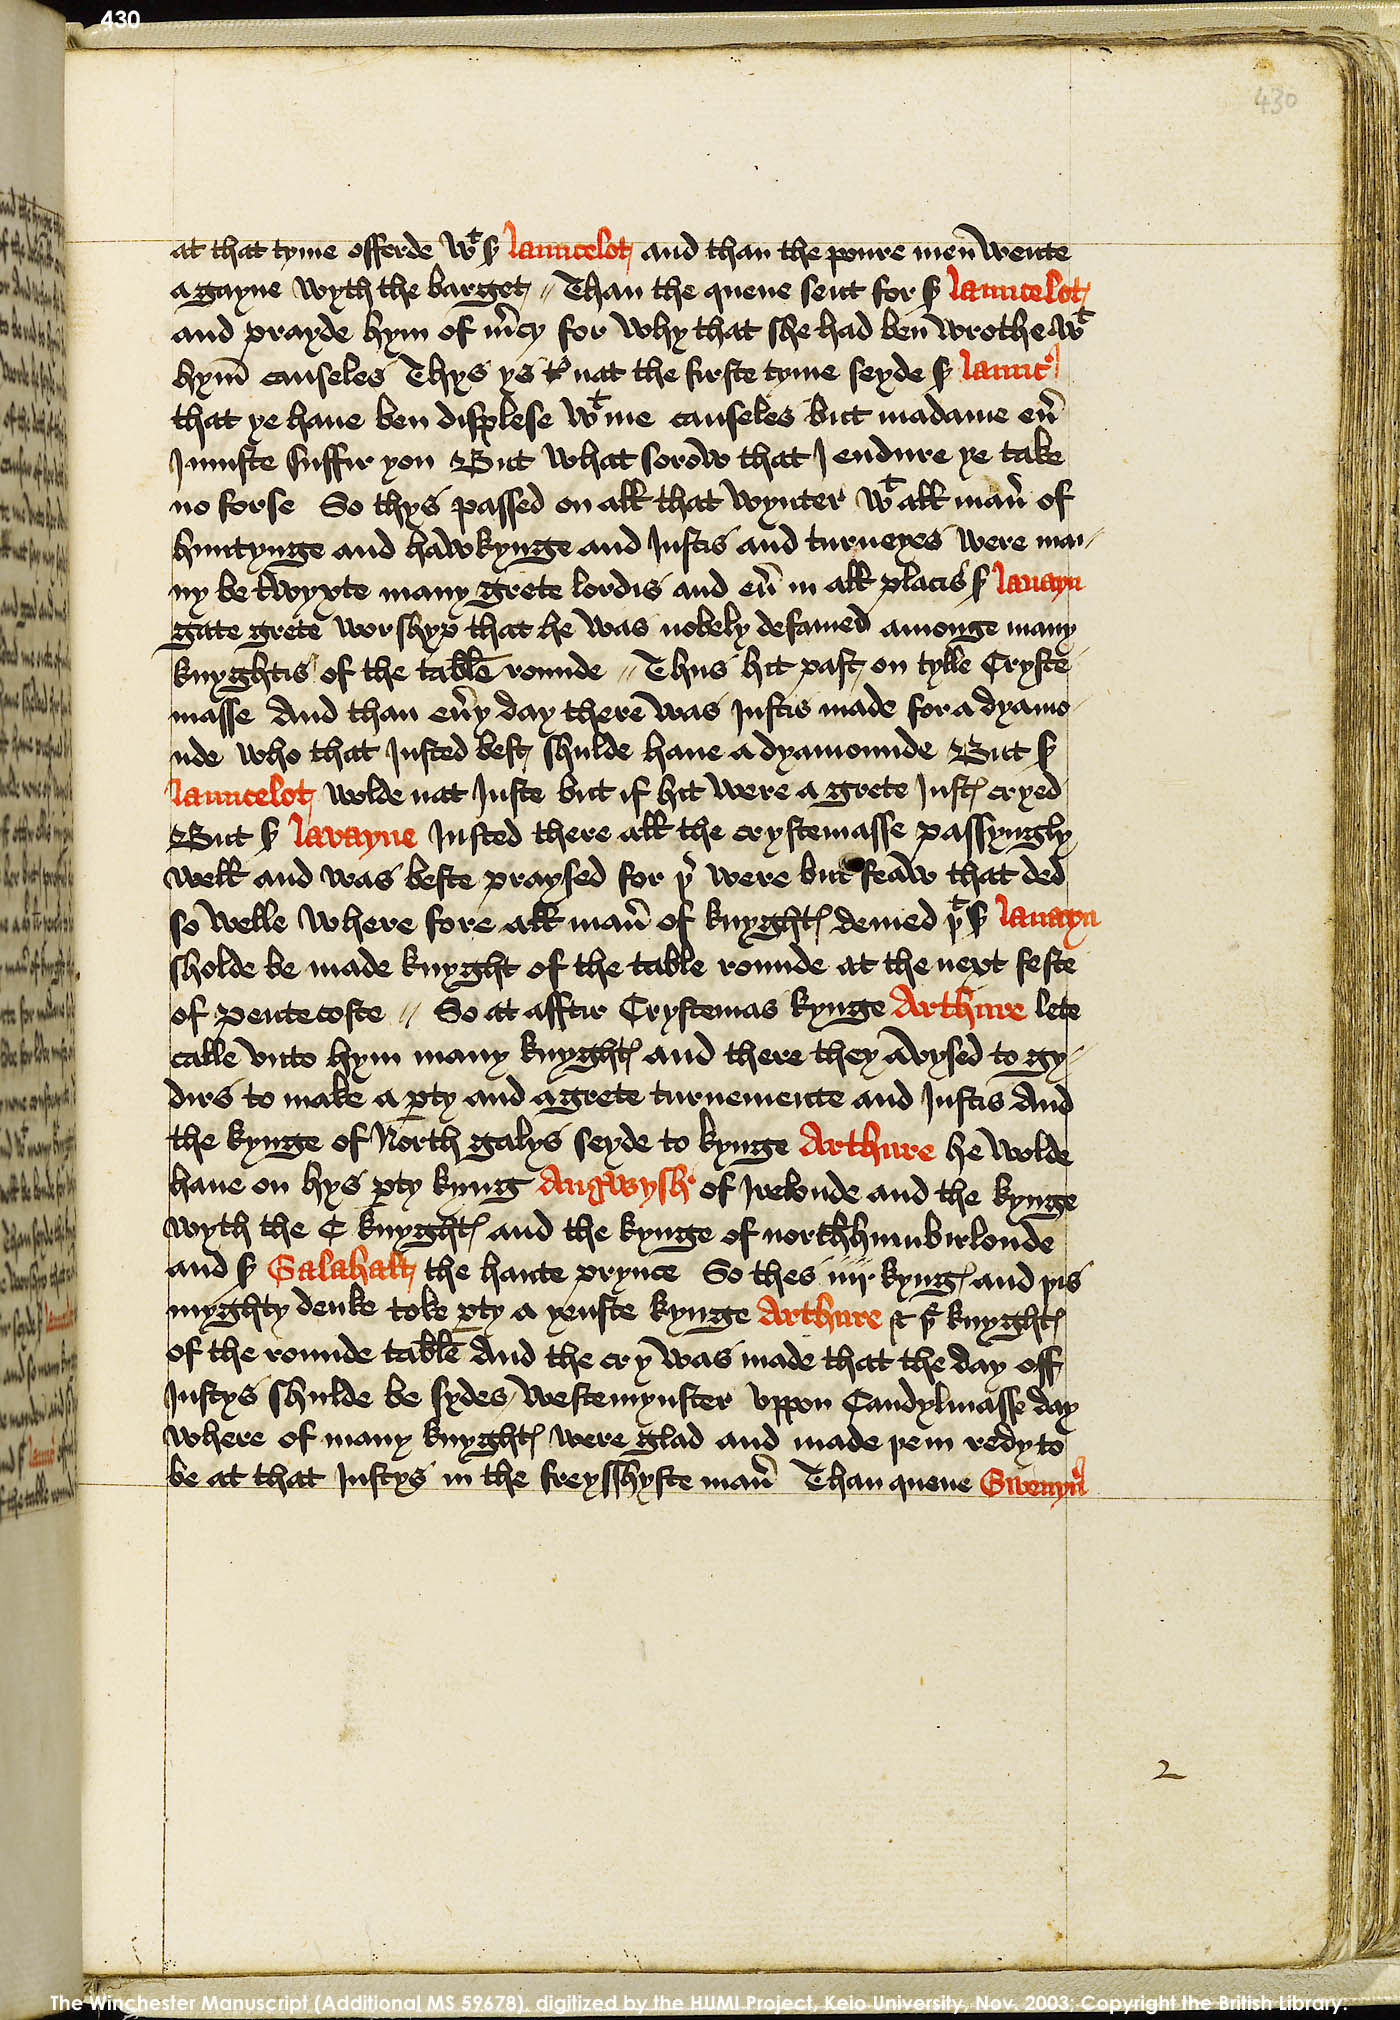 430
430
at that tyme offerde wᵗ ẜ launcelot and than the poure men wente
a gayne wyth the barget // Than the quene sent for ẜ launcelot
and prayde hym of m̃cy for why that she had ben wrothe wᵗ
hym causeles Thys ys nat the firste tyme seyde ẜ launc̉
that ye haue ben displese wᵗ me causeles but madame eũ
I muste suffir you But what sorow that I endure ye take
no forse So thys passed on all that wynter wᵗ all mañ of
huntynge and hawkynge and Justis and turneyes were ma-
ny be twyxte many grete lordis and eũ in all placis ẜ lauayn
gate grete worshyp that he was nobely defamed amonge many
knyghtis of the table rounde // Thus hit past on tylle Cryste
masse And than eũy day there was Justis made for a dyamo
unde who that Justed best shulde haue a dyamounde But ẜ
launcelot wolde nat Juste but if hit were a grete Justꝭ cryed
But ẜ lavayne Justed there all the crystemasse passyngly
well and was beste praysed for þ̉ were but feaw that ded
so welle where fore all mañ of knyghtꝭ demed þᵗ ẜ lauayn
sholde be made knyght of the table rounde at the next feste
of pentecoste // So at afftir Crystemas kynge Arthure lete
calle vnto hym many knyghtꝭ and there they avysed to gy-
dirs to make a ꝑty and a grete turnemente and Justis And
the kynge of North galys seyde to kynge Arthure he wolde
haue on hys ꝑty kyng Angwysh̉ of Irelonde and the kynge
wyth the C knyghtꝭ and the kynge of northhumbirlonde
and ẜ Galahalt the haute prynce So thes iiij kyngꝭ and þis
myghty deuke toke ꝑty a yenste kynge Arthure & þᵉ knyghtꝭ
of the rounde table And the cry was made that the day off
Justys shulde be sydes westemynster vppon Candylmasse day
where of many knyghtꝭ were glad and made þem redy to
be at that Justys in the freysshyste mañ Than quene Gwenyũ
2
The Winchester Manuscript (Additional MS 59678), digitized by the HUMI Project, Keio University, Nov. 2003; Copyright the British Library.